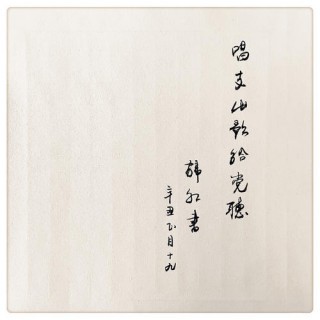 唱支山歌给党听
韩红书
辛丑正月十九